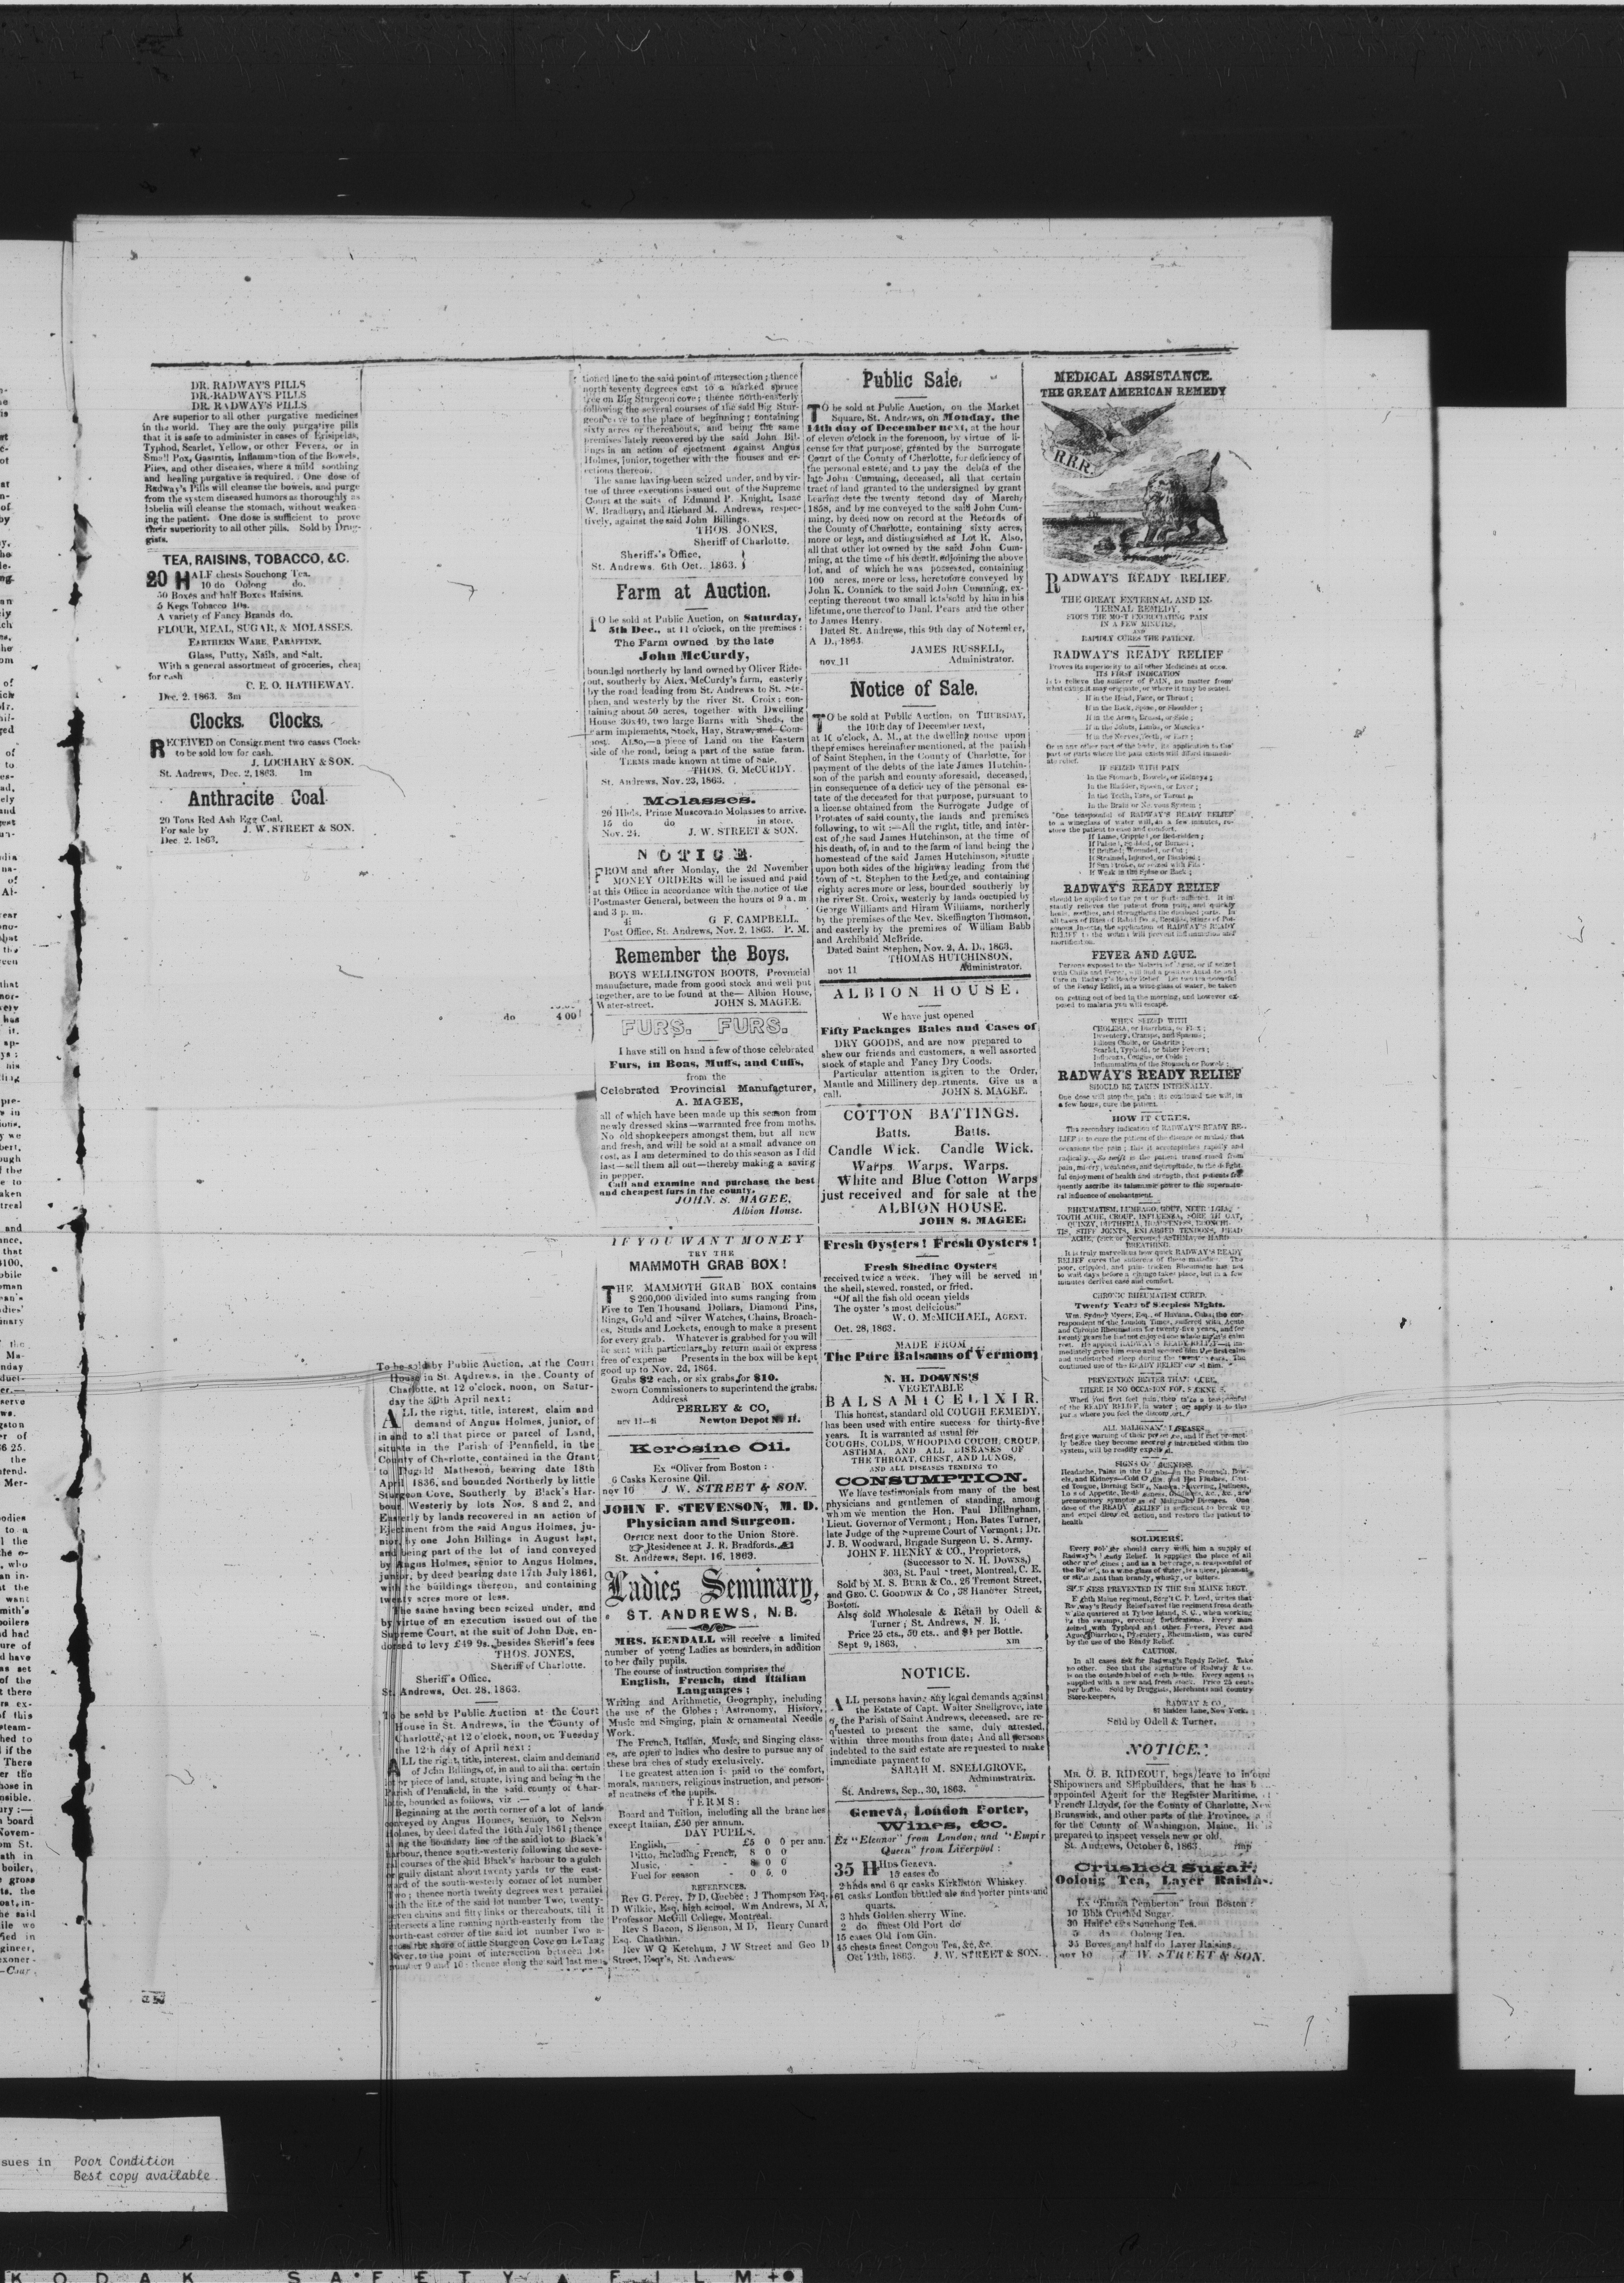 DR. RADWAY'S PILLS
DR. RADWAY'S PILLS
DR. RADWAY'S PILLS
Are superior to all other purgative medicines
in the world. They are the only purgative pills
that it is safe to administer in cases of Erisipelas,
Typhod, Scarlet, Yellow, or other Fevers, or in
Small Pox, Gastritis, Inflammation of the Bowels,
Piles, and other diseases, where a mild soothing
and healing purgative is required. One dose of
Radway's Pills will cleanse the bowels, and purge
from the system diseased humors as thoroughly as
lobelia will cleanse the stomach, without weaken
ing the patient. One dose is sufficient to prove
their superiority to all other pills. Sold by Drug-
gists.
TEA, RAISINS, TOBACCO, &C.
20 HALF chests Souchong Tea.
10 do Oolong do.
50 Boxes and half Boxes Raisins.
5 Kegs Tobacco 10s.
A variety of Fancy Brands do.
FLOUR, MEAL, SUGAR, & MOLASSES.
EARTHERN WARE, PARAFFINE,
Glass, Putty, Nails, and Salt.
With a general assortment of groceries, cheap
for cash
C. E. O. HATHEWAY.
Dec. 2. 1863. 3m
Clocks. Clocks.
RECEIVED on Consignment two cases Clocks
to be sold low for cash.
J. LOCHARY & SON.
St. Andrews, Dec. 2, 1863. 1m
Anthracite Coal
20 Tons Red Ash Egg Coal.
For sale by J. W. STREET & SON.
Dec. 2. 1863.
do 4 00
To be sold by Public Auction, at the Court
House in St. Andrews, in the County of
Charlotte, at 12 o'clock, noon, on Satur-
day the 30th April next:
ALL the right, title, interest, claim and
demand of Angus Holmes, junior, of
in and to all that piece or parcel of Land,
situate in the Parish of Pennfield, in the
County of Charlotte, contained in the Grant
to Dugald Matheson, bearing date 18th
April 1836, and bounded Northerly by little
Sturgeon Cove, Southerly by Black's Har-
bour, Westerly by lots Nos. 8 and 2, and
Easterly by lands recovered in an action of
Ejectment from the said Angus Holmes, ju-
nior, by one John Billings in August last,
and being part of the lot of land conveyed
by Angus Holmes, senior to Angus Holmes,
junior, by deed bearing date 17th July 1861,
with the buildings thereon, and containing
twenty acres more or less.
The same having been seized under, and
by virtue of an execution issued out of the
Supreme Court, at the suit of John Doe, en-
dorsed to levy £49 9s. besides Sheriff's fees
THOS. JONES,
Sheriff of Charlotte.
Sheriff's Office,
St. Andrews, Oct. 28, 1863.
To be sold by Public Auction at the Court
House in St. Andrews, in the County of
Charlotte, at 12 o'clock, noon, on Tuesday
the 12th day of April next:
ALL the right, title, interest, claim and demand
of John Billings, of, in and to all that certain
lot or piece of land, situate, lying and being in the
Parish of Pennfield, in the said county of Char-
lotte, bounded as follows, viz:—
Beginning at the north corner of a lot of land
conveyed by Angus Holmes, senior, to Nelson
Holmes, by deed dated the 16th July 1861; thence
along the boundary line of the said lot to Black's
harbour, thence south-westerly following the seve-
ral courses of the said Black's harbour to a gulch
or gully distant about twenty yards to the east-
ward of the south-westerly corner of lot number
Two; thence north twenty degrees west parallel
with the line of the said lot number Two, twenty-
seven chains and fifty links or thereabouts, till it
intersects a line running north-easterly from the
north-east corner of the said lot number Two
the shore of little Sturgeon Cove on LeTang
River, to the point of intersection between lots
number 9 and 10; thence along the said last men-
tioned line to the said point of intersection; thence
north seventy degrees east to a marked spruce
tree on Big Sturgeon cove; thence north-easterly
following the several courses of the said Big Stur-
geon cove to the place of beginning; containing
sixty acres or thereabouts, and being the same
premises lately recovered by the said John Bil-
lings in an action of ejectment against Angus
Holmes, Junior, together with the houses and er-
ections thereon.
The same having been seized under, and by vir-
tue of three executions issued out of the Supreme
Court at the suits of Edmund P. Knight, Isaac
W. Bradbury, and Richard M. Andrews, respec-
tively, against the said John Billings.
THOS. JONES,
Sheriff of Charlotte.
Sheriff's Office,
St. Andrews. 6th Oct. 1863.
Farm at Auction.
TO be sold at Public Auction, on Saturday,
5th Dec., at 11 o'clock, on the premises:
The Farm owned by the late
John McCurdy,
bounded northerly by land owned by Oliver Ride-
out, southerly by Alex. McCurdy's farm, easterly
by the road leading from St. Andrews to St. Ste-
phen, and westerly by the river St. Croix; con-
taining about 50 acres, together with Dwelling
House 30x40, two large Barns with Sheds, the
Farm implements, Stock, Hay, Straw, and Com-
post. ALSO,—a piece of Land on the Eastern
side of the road, being a part of the same farm.
TERMS made known at time of Sale.
THOS. G. McCURDY.
St. Andrews, Nov. 23, 1863.
Molasses.
20 Hhds. Prime Muscovado Molasses to arrive.
15 do do in store.
Nov. 24. J. W. STREET & SON.
NOTICE.
FROM and after Monday, the 2d November
MONEY ORDERS will be issued and paid
at this Office in accordance with the notice of the
Postmaster General, between the hours of 9 a. m
and 3 p. m.
4i G F. CAMPBELL,
Post Office. St. Andrews, Nov. 2. 1863. P. M.
Remember the Boys.
BOYS WELLINGTON BOOTS, Provincial
manufacture, made from good stock and well put
together, are to be found at the— Albion House,
Water-street. JOHN S. MAGEE.
FURS. FURS.
I have still on hand a few of those celebrated
Furs, in Boas, Muffs, and Cuffs,
from the
Celebrated Provincial Manufacturer,
A. MAGEE,
all of which have been made up this season from
newly dressed skins—warranted free from moths.
No old shopkeepers amongst them, but all new
and fresh, and will be sold at a small advance on
cost, as I am determined to do this season as I did
last—sell them all out—thereby making a saving
in pepper.
Call and examine and purchase the best
and cheapest furs in the county.
JOHN. S. MAGEE,
Albion House.
IF YOU WANT MONEY
TRY THE
MAMMOTH GRAB BOX!
THE MAMMOTH GRAB BOX contains
$200,000 divided into sums ranging from
Five to Ten Thousand Dollars, Diamond Pins,
Rings, Gold and Silver Watches, Chains, Broach-
es, Studs and Lockets, enough to make a present
for every grab. Whatever is grabbed for you will
be sent with particulars, by return mail or express
free of expense Presents in the box will be kept
good up to Nov. 2d, 1864.
Grabs $2 each, or six grabs for $10.
Sworn Commissioners to superintend the grabs.
Address
PERLEY & CO,
nov 11—ti Newton Depot N. H.
Kerosine Oil.
Ex "Oliver from Boston:
6 Casks Kerosine Oil.
nov 10 J. W. STREET & SON.
JOHN F. STEVENSON, M. D.
Physician and Surgeon.
OFFICE next door to the Union Store.
Residence at J. R. Bradfords.
St. Andrews, Sept. 16, 1863.
Ladies Seminary,
ST. ANDREWS, N. B.
MRS. KENDALL will receive a limited
number of young Ladies as boarders, in addition
to her daily pupils.
The course of instruction comprises the
English, French, and Italian
Languages;
Writing and Arithmetic, Geography, including
the use of the Globes; Astronomy, History,
Music and Singing, plain & ornamental Needle
Work.
The French, Italian, Music, and Singing class-
es, are open to ladies who desire to pursue any of
these branches of study exclusively.
The greatest attention is paid to the comfort,
morals, manners, religious instruction, and person-
al neatness of the pupils.
TERMS:
Board and Tuition, including all the branches
except Italian, £50 per annum.
DAY PUPILS.
English,— £5 0 0 per ann.
Ditto, including French, 8 0 0
Music, - 8 0 0
Fuel for season - 0 5 0
REFERENCES.
Rev G. Percy, D D, Quebec; J Thompson Esq.
D Wilkie, Esq, high school, Wm Andrews, M A,
Professor McGill College, Montreal.
Rev S Bacon, S Benson, M D, Henry Cunard
Esq. Chatham.
Rev W Q Ketchum, J W Street and Geo D
Street, Esqr's, St. Andrews.
Public Sale.
TO be sold at Public Auction, on the Market
Square, St. Andrews, on Monday, the
14th day of December next, at the hour
of eleven o'clock in the forenoon, by virtue of li-
cense for that purpose, granted by the Surrogate
Court of the County of Charlotte, for deficiency of
the personal estate, and to pay the debts of the
late John Cumming, deceased, all that certain
tract of land granted to the undersigned by grant
bearing date the twenty second day of March,
1858, and by me conveyed to the said John Cum-
ming, by deed now on record at the Records of
the County of Charlotte, containing sixty acres,
more or less, and distinguished as Lot R. Also,
all that other lot owned by the said John Cum-
ming, at the time of his death, adjoining the above
lot, and of which he was possessed, containing
100 acres, more or less, heretofore conveyed by
John K. Connick to the said John Cumming, ex-
cepting thereout two small lots sold by him in his
lifetime, one thereof to Danl. Pears and the other
to James Henry.
Dated St. Andrews, this 9th day of November,
A D., 1863.
JAMES RUSSELL,
nov 11 Administrator.
Notice of Sale.
TO be sold at Public Auction, on THURSDAY,
the 10th day of December next,
at 10 o'clock, A. M., at the dwelling house upon
the premises hereinafter mentioned, at the parish
of Saint Stephen, in the County of Charlotte, for
payment of the debts of the late James Hutchin-
son of the parish and county aforesaid, deceased,
in consequence of a deficiency of the personal es-
tate of the deceased for that purpose, pursuant to
a license obtained from the Surrogate Judge of
Probates of said county, the lands and premises
following, to wit:—All the right, title, and inter-
est of the said James Hutchinson, at the time of
his death, of, in and to the farm of land being the
homestead of the said James Hutchinson, situate
upon both sides of the highway leading from the
town of St. Stephen to the Ledge, and containing
eighty acres more or less, bounded southerly by
the river St. Croix, westerly by lands occupied by
George Williams and Hiram Williams, northerly
by the premises of the Rev. Skeffington Thomson,
and easterly by the premises of William Babb
and Archibald McBride.
Dated Saint Stephen, Nov. 2, A. D., 1863.
THOMAS HUTCHINSON,
nov 11 Administrator.
ALBION HOUSE.
We have just opened
Fifty Packages Bales and Cases of
DRY GOODS, and are now prepared to
shew our friends and customers, a well assorted
stock of staple and Fancy Dry Goods.
Particular attention is given to the Order,
Mantle and Millinery departments. Give us a
call. JOHN S. MAGEE.
COTTON BATTINGS.
Batts. Batts.
Candle Wick. Candle Wick.
Warps. Warps. Warps.
White and Blue Cotton Warps
just received and for sale at the
ALBION HOUSE.
JOHN S. MAGEE.
Fresh Oysters! Fresh Oysters!
Fresh Shediac Oysters
received twice a week. They will be served in
the shell, stewed, roasted, or fried.
"Of all the fish old ocean yields
The oyster's most delicious."
W. O. McMICHAEL, AGENT.
Oct. 28, 1863.
MADE FROM
The Pure Balsams of Vermont
N. H. DOWNS'S
VEGETABLE
BALSAMIC ELIXIR.
This honest, standard old COUGH REMEDY,
has been used with entire success for thirty-five
years. It is warranted as usual for
COUGHS, COLDS, WHOOPING COUGH, CROUP,
ASTHMA, AND ALL DISEASES OF
THE THROAT, CHEST, AND LUNGS,
AND ALL DISEASES TENDING TO
CONSUMPTION.
We have testimonials from many of the best
physicians and gentlemen of standing, among
whom we mention the Hon. Paul Dillingham,
Lieut. Governor of Vermont; Hon. Bates Turner,
late Judge of the Supreme Court of Vermont; Dr.
J. B. Woodward, Brigade Surgeon U. S. Army.
JOHN F. HENRY & CO., Proprietors,
(Successor to N. H. DOWNS,)
303, St. Paul Street, Montreal, C. E.
Sold by M. S. BURR & Co., 26 Tremont Street,
and GEO. C. GOODWIN & Co, 38 Hanover Street,
Boston.
Also sold Wholesale & Retail by Odell &
Turner; St. Andrews, N. B.
Price 25 cts., 50 cts., and $1 per Bottle.
Sept 9, 1863, xm
NOTICE.
ALL persons having any legal demands against
the Estate of Capt. Walter Snellgrove, late
of the Parish of Saint Andrews, deceased, are re-
quested to present the same, duly attested,
within three months from date; And all persons
indebted to the said estate are requested to make
immediate payment to
SARAH M. SNELLGROVE,
Administratrix.
St. Andrews, Sep., 30, 1863.
Geneva, London Porter,
Wines, &c.
Ex "Eleanor" from London, and "Empir
Queen" from Liverpool:
35 HHDS Geneva.
10 cases do
2 hhds and 6 qr casks Kirkliston Whiskey
61 casks London bottled ale and porter pints and
quarts.
3 hhds Golden sherry Wine.
2 do finest Old Port do
15 cases Old Tom Gin.
45 chests finest Congou Tea, &c, &c.
Oct 12th, 1863. J. W. STREET & SON.
MEDICAL ASSISTANCE.
THE GREAT AMERICAN REMEDY
R.R.R.
RADWAY'S READY RELIEF,
THE GREAT EXTERNAL AND IN-
TERNAL REMEDY,
STOPS THE MOST EXCRUCIATING PAIN
IN A FEW MINUTES,
AND
RAPIDLY CURES THE PATIENT.
RADWAY'S READY RELIEF
Proves its superiority to all other Medicines at once.
ITS FIRST INDICATION
Is to relieve the sufferer of PAIN, no matter from
what cause it may originate, or where it may be seated.
If in the Head, Face, or Throat;
If in the Back, Spine, or Shoulder;
If in the Arms, Breast, or Side;
If in the Joints, Limbs, or Muscles
If in the Nerves, Teeth, or Ears;
Or in any other part of the body, its application to the
part or parts where the pain exists will afford immedi-
ate relief.
IF SEIZED WITH PAIN
In the Stomach, Bowels, or Kidneys;
In the Bladder, Spleen, or Liver;
In the Teeth, Ears, or Throat
In the Brain or Nervous System;
One teaspoonful of RADWAY'S READY RELIEF
to a wineglass of water will, in a few minutes, re-
store the patient to ease and comfort.
If Lame, Crippled, or Bed-ridden;
If Palsied, Scalded, or Burned;
If Bruised, Wounded, or Cut;
If Strained, Injured, or Disabled;
If Sun Stroke, or seized with Fits
If Weak in the Spine or Back;
RADWAY'S READY RELIEF
should be applied to the part or parts affected. It in-
stantly relieves the patient from pain, and quickly
heals, soothes, and strengthens the disabled parts. In
all cases of Bites of Rabid Dogs, Reptiles, Stings of Poi-
sonous Insects, the application of RADWAY'S READY
RELIEF to the wound will prevent inflammation and
mortification.
FEVER AND AGUE.
Persons exposed to the Malaria of Ague, or if seized
with Chills and Fever, will find a positive Antidote and
Cure in Radway's Ready Relief. Let two teaspoonful
of the Ready Relief, in a wine-glass of water, be taken
on getting out of bed in the morning, and however ex-
posed to malaria you will escape.
WHEN SEIZED WITH
CHOLERA, or Diarrhœa, or Flux;
Dysentery, Cramps, and Spasms;
Bilious Cholic, or Gastritis;
Scarlet, Typhoid, or other Fevers;
Influenza, Coughs, or Colds;
Inflammation of the Stomach or Bowels;
RADWAY'S READY RELIEF
SHOULD BE TAKEN INTERNALLY.
One dose will stop the pain; its continued use will, in
a few hours, cure the patient.
HOW IT CURES.
The secondary indication of RADWAY'S READY RE-
LIEF is to cure the patient of the disease or malady that
occasions the pain; this it accomplishes rapidly and
radically. So swift is the patient transformed from
pain, misery, weakness, and decrepitude, to the delight-
ful enjoyment of health and strength, that patients fre-
quently ascribe its talismanic power to the supernatu-
ral influence of enchantment.
RHEUMATISM, LUMBAGO, GOUT, NEURALGIA,
TOOTH ACHE, CROUP, INFLUENZA, SORE THROAT,
QUINZY, DIPTHERIA, HOARSENESS, BRONCHI-
TIS, STIFF JOINTS, ENLARGED TENDONS, HEAD
ACHE, (Sick or Nervous,) ASTHMA, or HARD
BREATHING.
It is truly marvellous how quick RADWAY'S READY
RELIEF cures the sufferers of these maladies. The
poor, crippled, and pain-stricken Rheumatic has not
to wait days before a change takes place, but in a few
minutes derives ease and comfort.
CHRONIC RHEUMATISM CURED.
Twenty Years of Sleepless Nights.
Wm. Sydney Myers, Esq., of Havana, Cuba, the cor-
respondent of the London Times, suffered with Acute
and Chronic Rheumatism for twenty-five years, and for
twenty years he had not enjoyed one whole night's calm
rest. He applied RADWAY'S READY RELIEF—it im-
mediately gave him ease and secured him the first calm
and undisturbed sleep during the twenty years. The
continued use of the READY RELIEF cured him.
PREVENTION BETTER THAN CURE.
THERE IS NO OCCASION FOR SICKNESS.
When you first feel pain, then take a teaspoonful
of the READY RELIEF, in water; or apply it to the
parts where you feel the discomfort.
ALL MALIGNANT DISEASES
first give warning of their presence, and if met prompt-
ly before they become securely intrenched within the
system, will be readily expelled.
SIGNS OF SICKNESS.
Headache, Pains in the Limbs—in the Stomach, Bow-
els, and Kidneys—Cold Chills, and Hot Flushes, Coat-
ed Tongue, Burning Skin, Nausea, Shivering, Dullness,
Loss of Appetite, Restlessness, Giddiness, &c., &c., are
premonitory symptoms of Malignant Diseases. One
dose of the READY RELIEF is sufficient to break up
and expel diseased action, and restore the patient to
health
SOLDIERS.
Every soldier should carry with him a supply of
Radway's Ready Relief. It supplies the place of all
other medicines; and as a beverage, a teaspoonful of
the Relief, to a wine glass of water, is a nicer, pleasant-
er stimulant than brandy, whisky, or bitters.
SICKNESS PREVENTED IN THE 8TH MAINE REGT.
Eighth Maine regiment, Serg't C. P. Lord, writes that
Radway's Ready Relief saved the regiment from death
while quartered at Tybee Island, S. C., when working
in the swamps, erecting fortifications. Every man
seized with Typhoid and other Fevers, Fever and
Ague, Diarrhœa, Dysentery, Rheumatism, was cured
by the use of the Ready Relief.
CAUTION.
In all cases ask for Radway's Ready Relief. Take
no other. See that the signature of Radway & Co.
is on the outside label of each bottle. Every agent is
supplied with a new and fresh stock. Price 25 cents
per bottle. Sold by Druggists, Merchants and country
Store-keepers.
RADWAY & CO.,
87 Maiden Lane, New York.
Sold by Odell & Turner.
NOTICE.
MR. O. B. RIDEOUT, begs leave to inform
Shipowners and Shipbuilders, that he has
appointed Agent for the Register Maritime,
French Lloyds, for the County of Charlotte, New
Brunswick, and other parts of the Province,
for the County of Washington, Maine. He is
prepared to inspect vessels new or old.
St. Andrews, October 6, 1863.
Crushed Sugar,
Oolong Tea, Layer Raisins.
Ex "Emma Pemberton" from Boston:
10 Bbls Crushed Sugar.
30 Half chests Souchong Tea.
5 do Oolong Tea.
35 Boxes and half do Layer Raisins.
nov 10 J. W. STREET & SON.
sues in Poor Condition
Best copy available.
KODAK SAFETY FILM